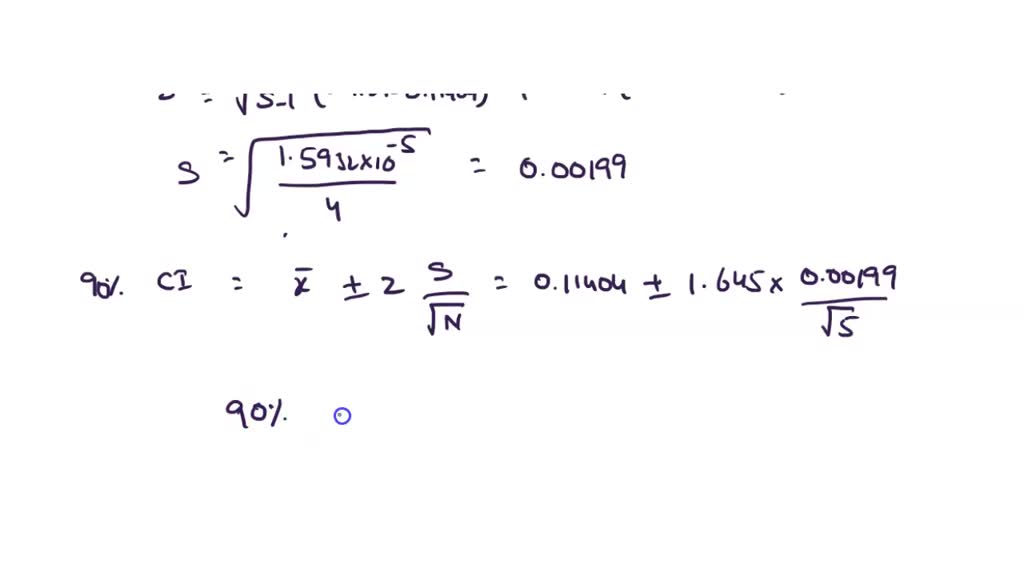 S = √(1.5932×10^-5 / 4) = 0.00199
90% CI = x̄ ± 2 S/√N = 0.11404 ± 1.645 × 0.00199/√5
90%